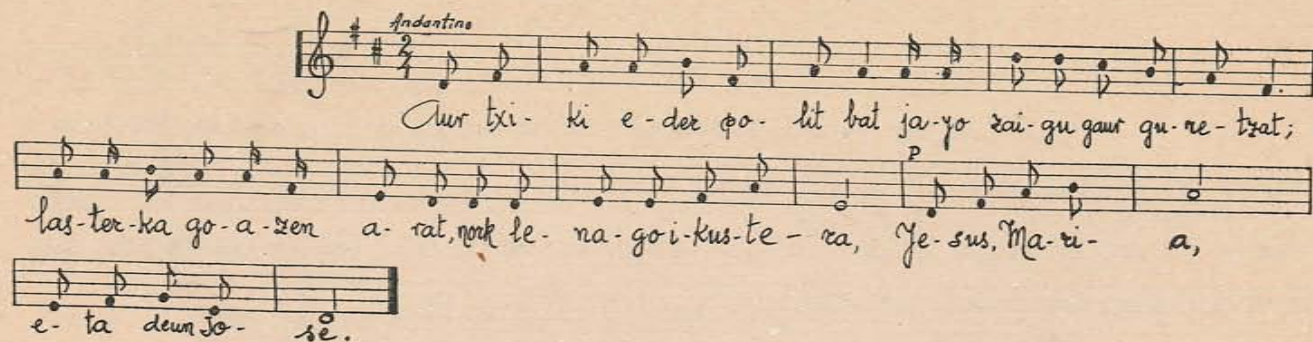 Andantino
2
4
Aur txi- ki e- der po- lit bat ja- yo zai- gu gaur gu- re- tzat;
P
las- ter- ka go- a- zen a- rat, nork le- na- go i- kus- te- ra, Je- sus, Ma- ri- a,
e- ta deun Jo- se.